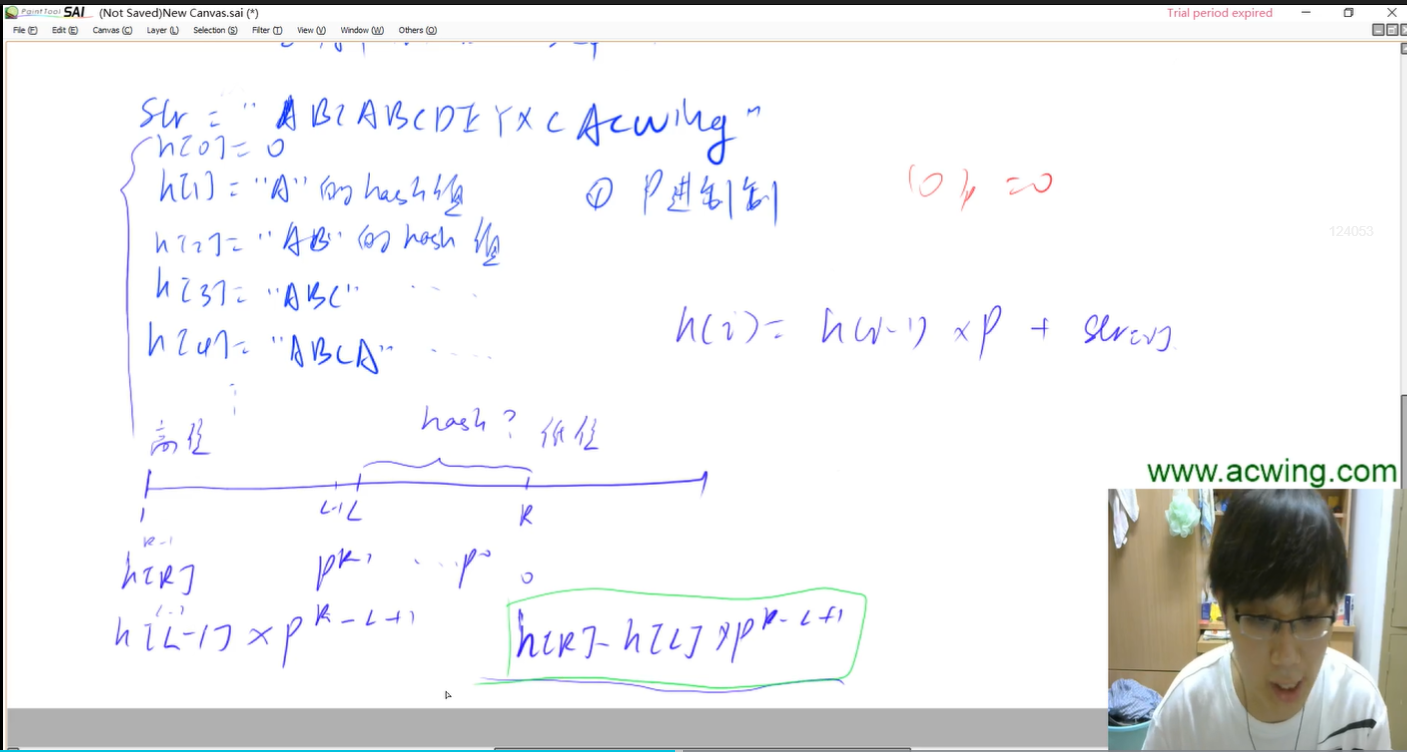 PaintTool SAI (Not Saved)New Canvas.sai (*)
Trial period expired
File (F) Edit (E) Canvas (C) Layer (L) Selection (S) Filter (T) View (V) Window (W) Others (O)
str = "ABCABCDEYXCAcwing"
h[0]= 0
h[1]= "A" 的 hash值
① P进制制
(0)p =0
h[2]= "AB" 的 hash 值
124053
h[3]= "ABC" ....
h(i)= h(i-1) ×P + str[i]
h[4]= "ABCA" ....
⋮
hash?
高位
低位
1 L-1 L R
R-1
h[R] P^R-1 ...P^0
0
L-1
h[L-1] × P^R-L+1
h[R]- h[L] ×P^R-L+1
www.acwing.com